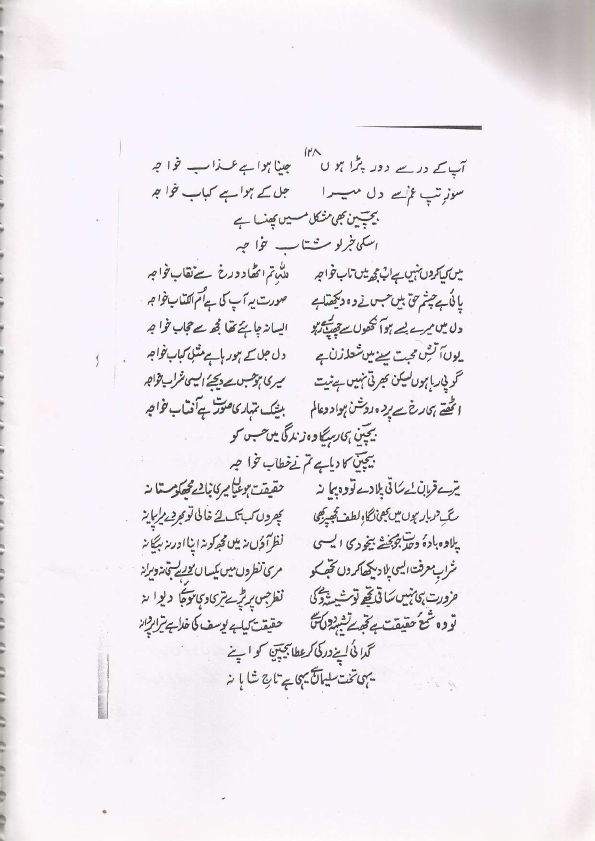 ۱۲۸
آپ کے در سے دور پڑا ہوں جینا ہوا ہے عذاب خواجہ
سوزِ تپِ غم سے دل میرا جل کے ہوا ہے کباب خواجہ
بیچینؔ بھی مشکل میں پھنسا ہے
اسکی خبر لو شتاب خواجہ
میں کیا کروں نہیں ہے اب مجھ میں تاب خواجہ للہ تم اٹھا دو رخ سے نقاب خواجہ
پائی ہے چشم حق بیں جس نے وہ دیکھتا ہے صورت یہ آپ کی ہے اُم الکتاب خواجہ
دل میں میرے بسے ہو آنکھوں سے چھپے ہو ایسا نہ چاہئے تھا مجھ سے حجاب خواجہ
یوں آتشِ محبت سینے میں شعلہ زن ہے دل جل کے ہو رہا ہے مثلِ کباب خواجہ
گو پی رہا ہوں لیکن بھرتی نہیں ہے نیت سیری ہو جس سے دیجئے ایسی شراب خواجہ
اٹھتے ہی رخ سے پردہ روشن ہوا دو عالم بیشک تمہاری صورت ہے آفتاب خواجہ
بیچینؔ ہی رہیگا وہ زندگی میں جس کو
بیچینؔ کا دیا ہے تم نے خطاب خواجہ
تیرے قربان اے ساقی پلا دے تو وہ پیمانہ حقیقت ہو عیاں میری بنا دے مجھکو مستانہ
سگِ دربار ہوں میں بھی نگاہِ لطف مجھ پر بھی پھروں کب تک لئے خالی تو بھر دے میرا پیمانہ
پلا وہ بادۂ وحدت جو بخشے بیخودی ایسی نظر آؤں نہ میں مجھکو نہ اپنا اور نہ بیگانہ
شرابِ معرفت ایسی پلا دیکھا کروں تجھکو مری نظروں میں یکساں ہو یہ بستی نہ ویرانہ
ضرورت ہی نہیں ساقی تجھے تو شیشہ و مے کی نظر جس پر پڑے تیری وہی ہو جائے دیوانہ
تو وہ شمع حقیقت ہے حقیقت کیا ہے یوسف کی خدا ہے تیرا پروانہ
گدائی اپنے در کی کر عطا بیچینؔ کو اپنے
یہی تخت سلیماں ہے یہی ہے تاج شاہانہ